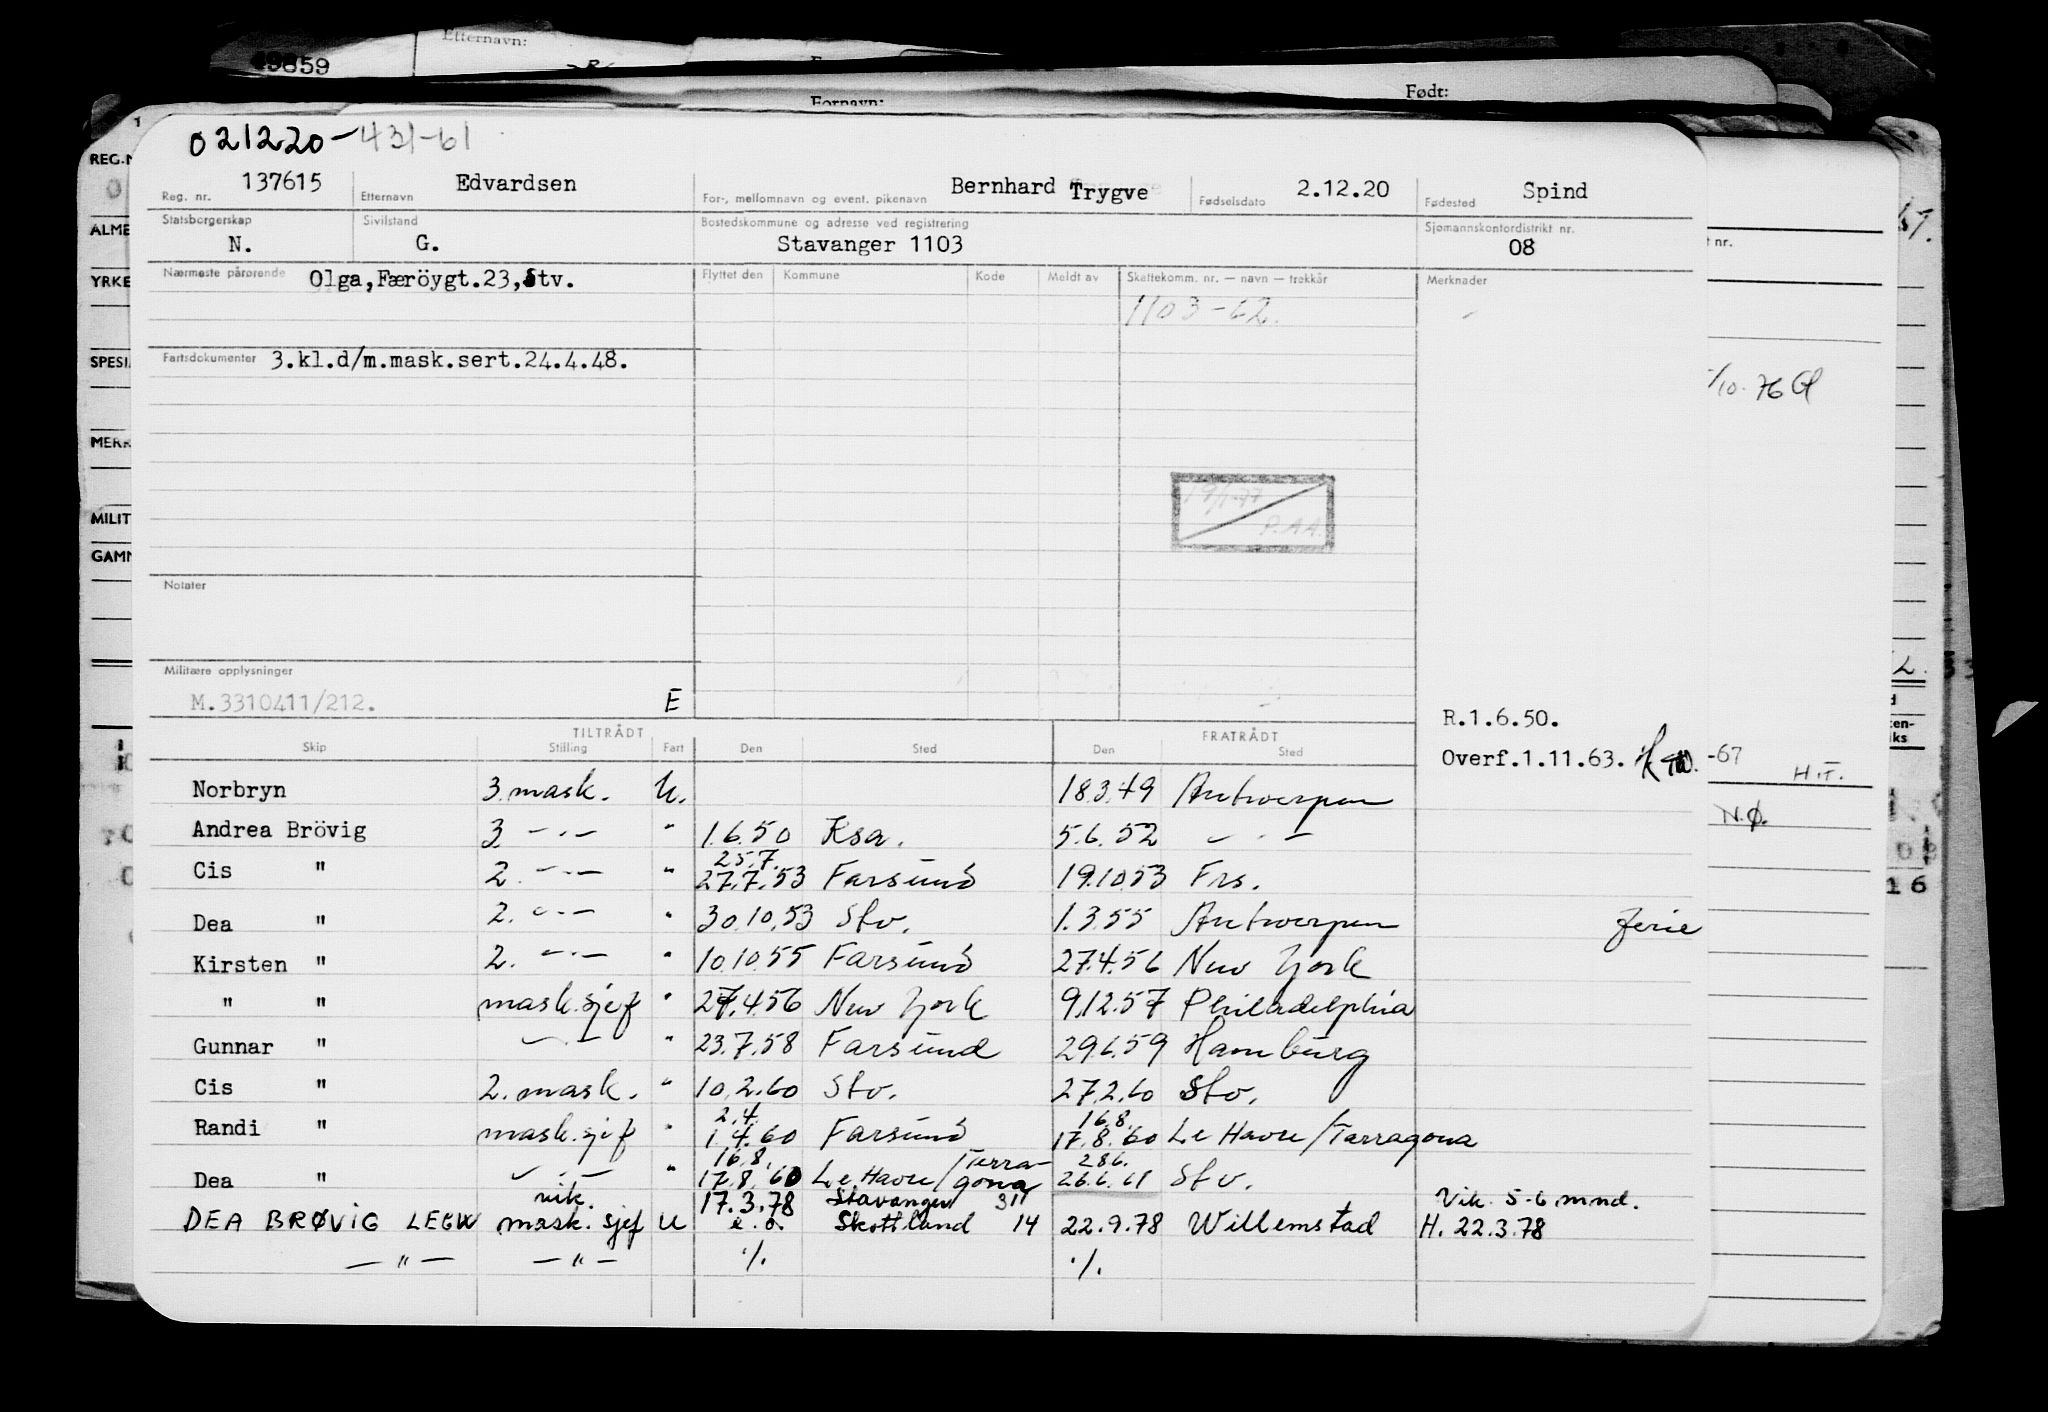 Etternavn:
Fornavn:
Født:
021220-431-61
REG.N
ALME
YRKE
SPESI
MERK
MILIT
GAMM
137615 Edvardsen Bernhard Trygve 2.12.20 Spind
Reg. nr. Etternavn For-, mellomnavn og event. pikenavn Fødselsdato Fødested
Statsborgerskap Sivilstand Bostedskommune og adresse ved registrering Sjømannskontordistrikt nr.
N. G. Stavanger 1103 08
Nærmeste pårørende Olga, Færöygt.23, Stv. Flyttet den Kommune Kode Meldt av Skattekomm. nr. — navn — trekkår Merknader
1103-62.
Fartsdokumenter 3.kl.d/m.mask.sert.24.4.48.
/10. 76
P.AA.
Notater
Militære opplysninger
M.3310411/212. E
R.1.6.50.
Overf.1.11.63.
-67 H.T.
N.Ø.
TILTRÅDT FRATRÅDT
Skip Stilling Fart Den Sted Den Sted
Norbryn 3. mask. U. 18.3.49 Antwerpen
Andrea Brövig 3. —"— " 1.6.50 Ksa. 5.6.52 —"—
25.7.
Cis " 2. —"— " 27.7.53 Farsund 19.10.53 Frs.
Dea " 2. —"— " 30.10.53 Stv. 1.3.55 Antwerpen ferie
Kirsten " 2. —"— " 10.10.55 Farsund 27.4.56 New York
" " mask.sjef " 27.4.56 New York 9.12.57 Philadelphia
Gunnar " —"— " 23.7.58 Farsund 29.6.59 Hamburg
Cis " 2. mask. " 10.2.60 Stv. 27.2.60 Stv.
2.4. 16.8.
Randi " mask.sjef " 1.4.60 Farsund 17.8.60 Le Havre/Tarragona
16.8. Terra- 28.6.
Dea " —"— " 17.8.60 Le Havre/gona 26.6.61 Stv.
vik. 17.3.78 Stavanger 311 Vik. 5-6 mnd.
DEA BRØVIG LEGW mask. sjef U e.o. Skottland 14 22.9.78 Willemstad H. 22.3.78
—"— —"— ./. ./.